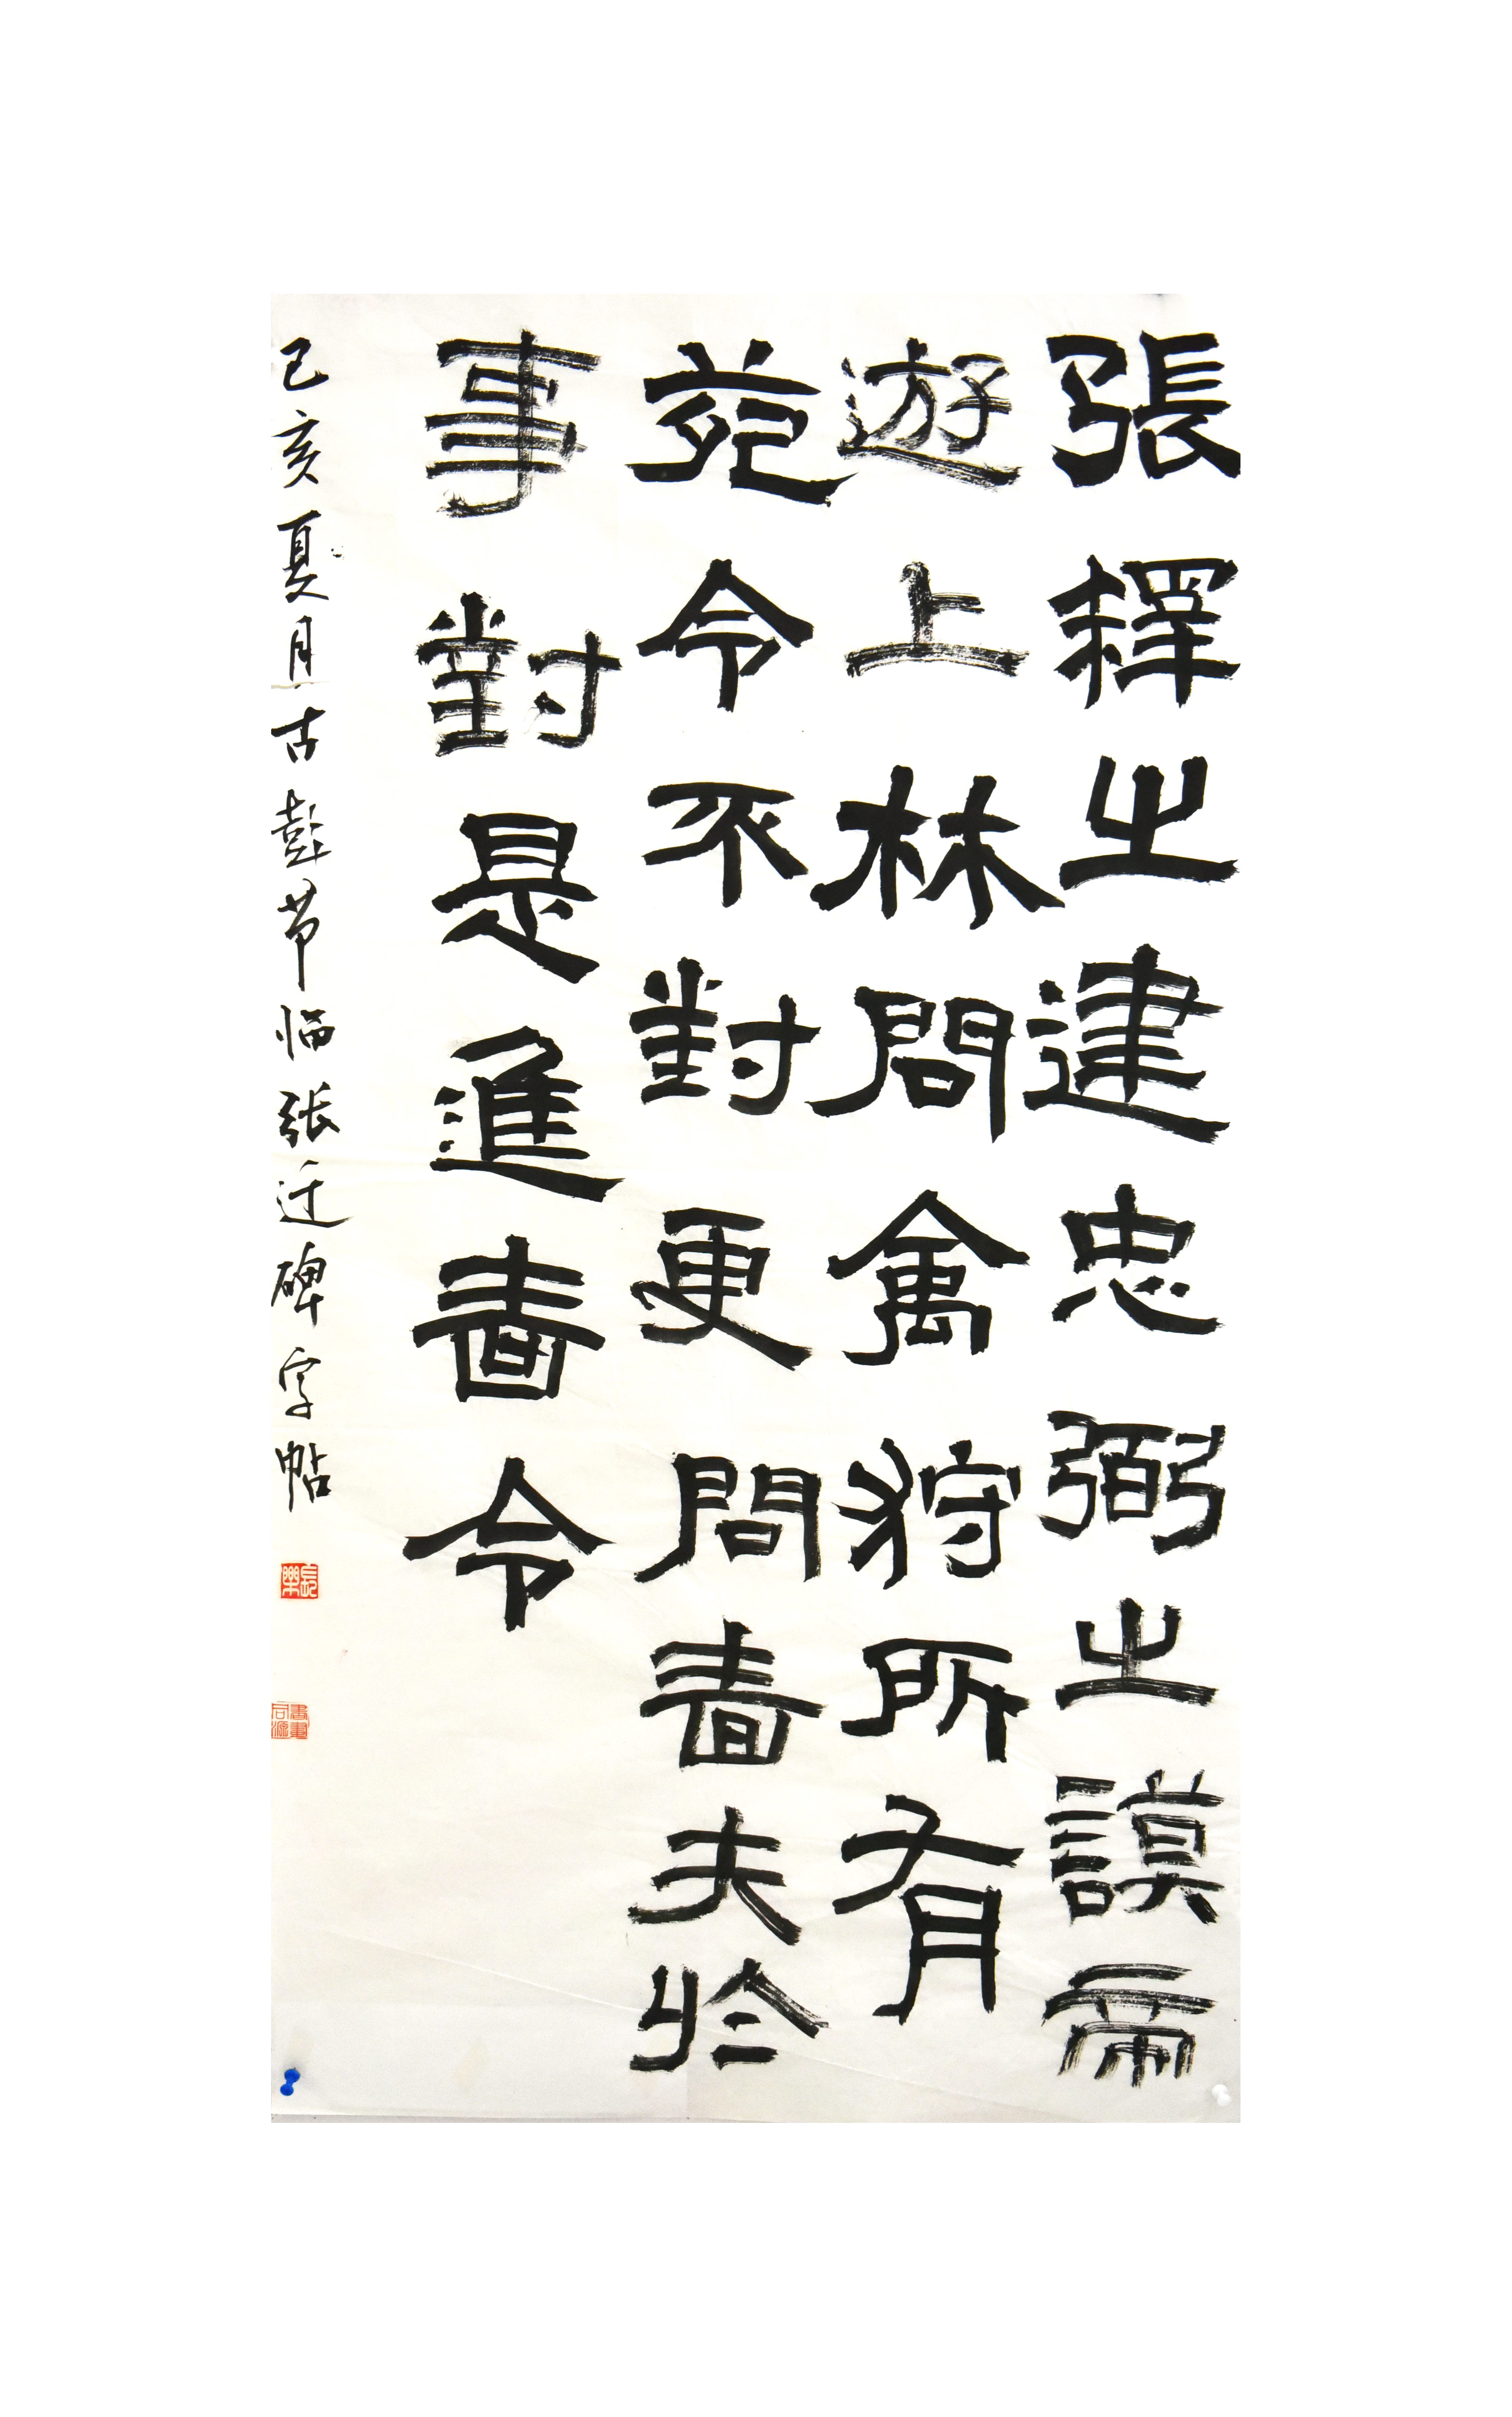 張釋之建忠弼之謨帝
遊上林問禽狩所有
苑令不對更問嗇夫於
事對是進嗇令
己亥夏月古彭节临张迁碑字帖
長樂
書畫同源